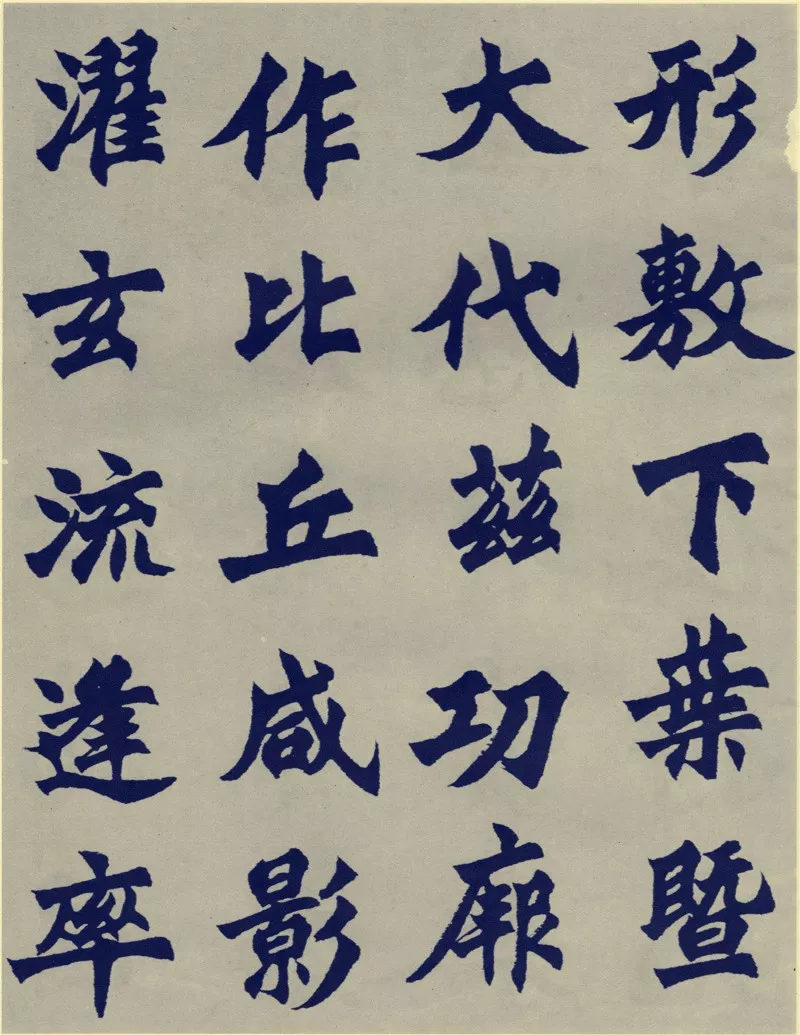 形敷下葉暨
大代茲功廓
作比丘咸影
濯玄流逢率